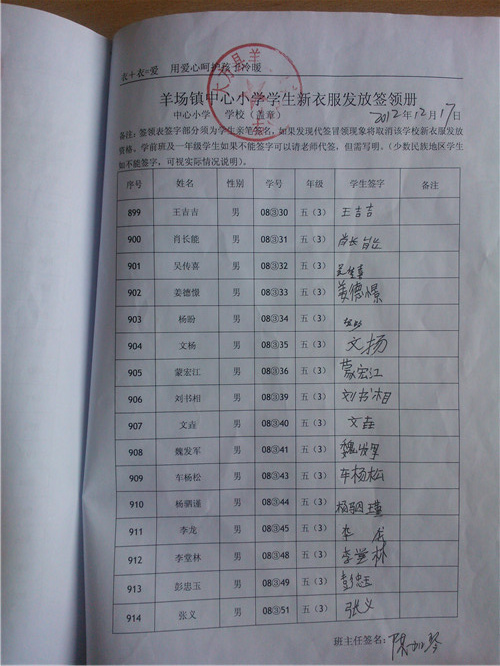 衣+衣=爱 用爱心呵护孩子冷暖
羊场镇中心小学学生新衣服发放签领册
中心小学 学校（盖章） 2012年12月17日
备注：签领表签字部分须为学生亲笔签名，如果发现代签冒领现象将取消该学校新衣服发放
资格、学前班及一年级学生如果不能签字可以请老师代签，但需写明。（少数民族地区学生
如不能签字，可视实际情况说明）。
序号 姓名 性别 学号 年级 学生签字 备注
899 王吉吉 男 08③30 五（3） 王吉吉
900 肖长能 男 08③31 五（3） 肖长能
901 吴传喜 男 08③32 五（3） 吴传喜
902 姜德憬 男 08③33 五（3） 姜德憬
903 杨盼 男 08③34 五（3）
904 文杨 男 08③35 五（3） 文扬
905 蒙宏江 男 08③36 五（3） 蒙宏江
906 刘书相 男 08③39 五（3） 刘书相
907 文垚 男 08③40 五（3） 文垚
908 魏发军 男 08③41 五（3） 魏发军
909 车杨松 男 08③43 五（3） 车杨松
910 杨驷谨 男 08③44 五（3） 杨驷瑾
911 李龙 男 08③45 五（3） 李龙
912 李堂林 男 08③48 五（3） 李堂林
913 彭忠玉 男 08③49 五（3） 彭忠玉
914 张义 男 08③51 五（3） 张义
班主任签名：